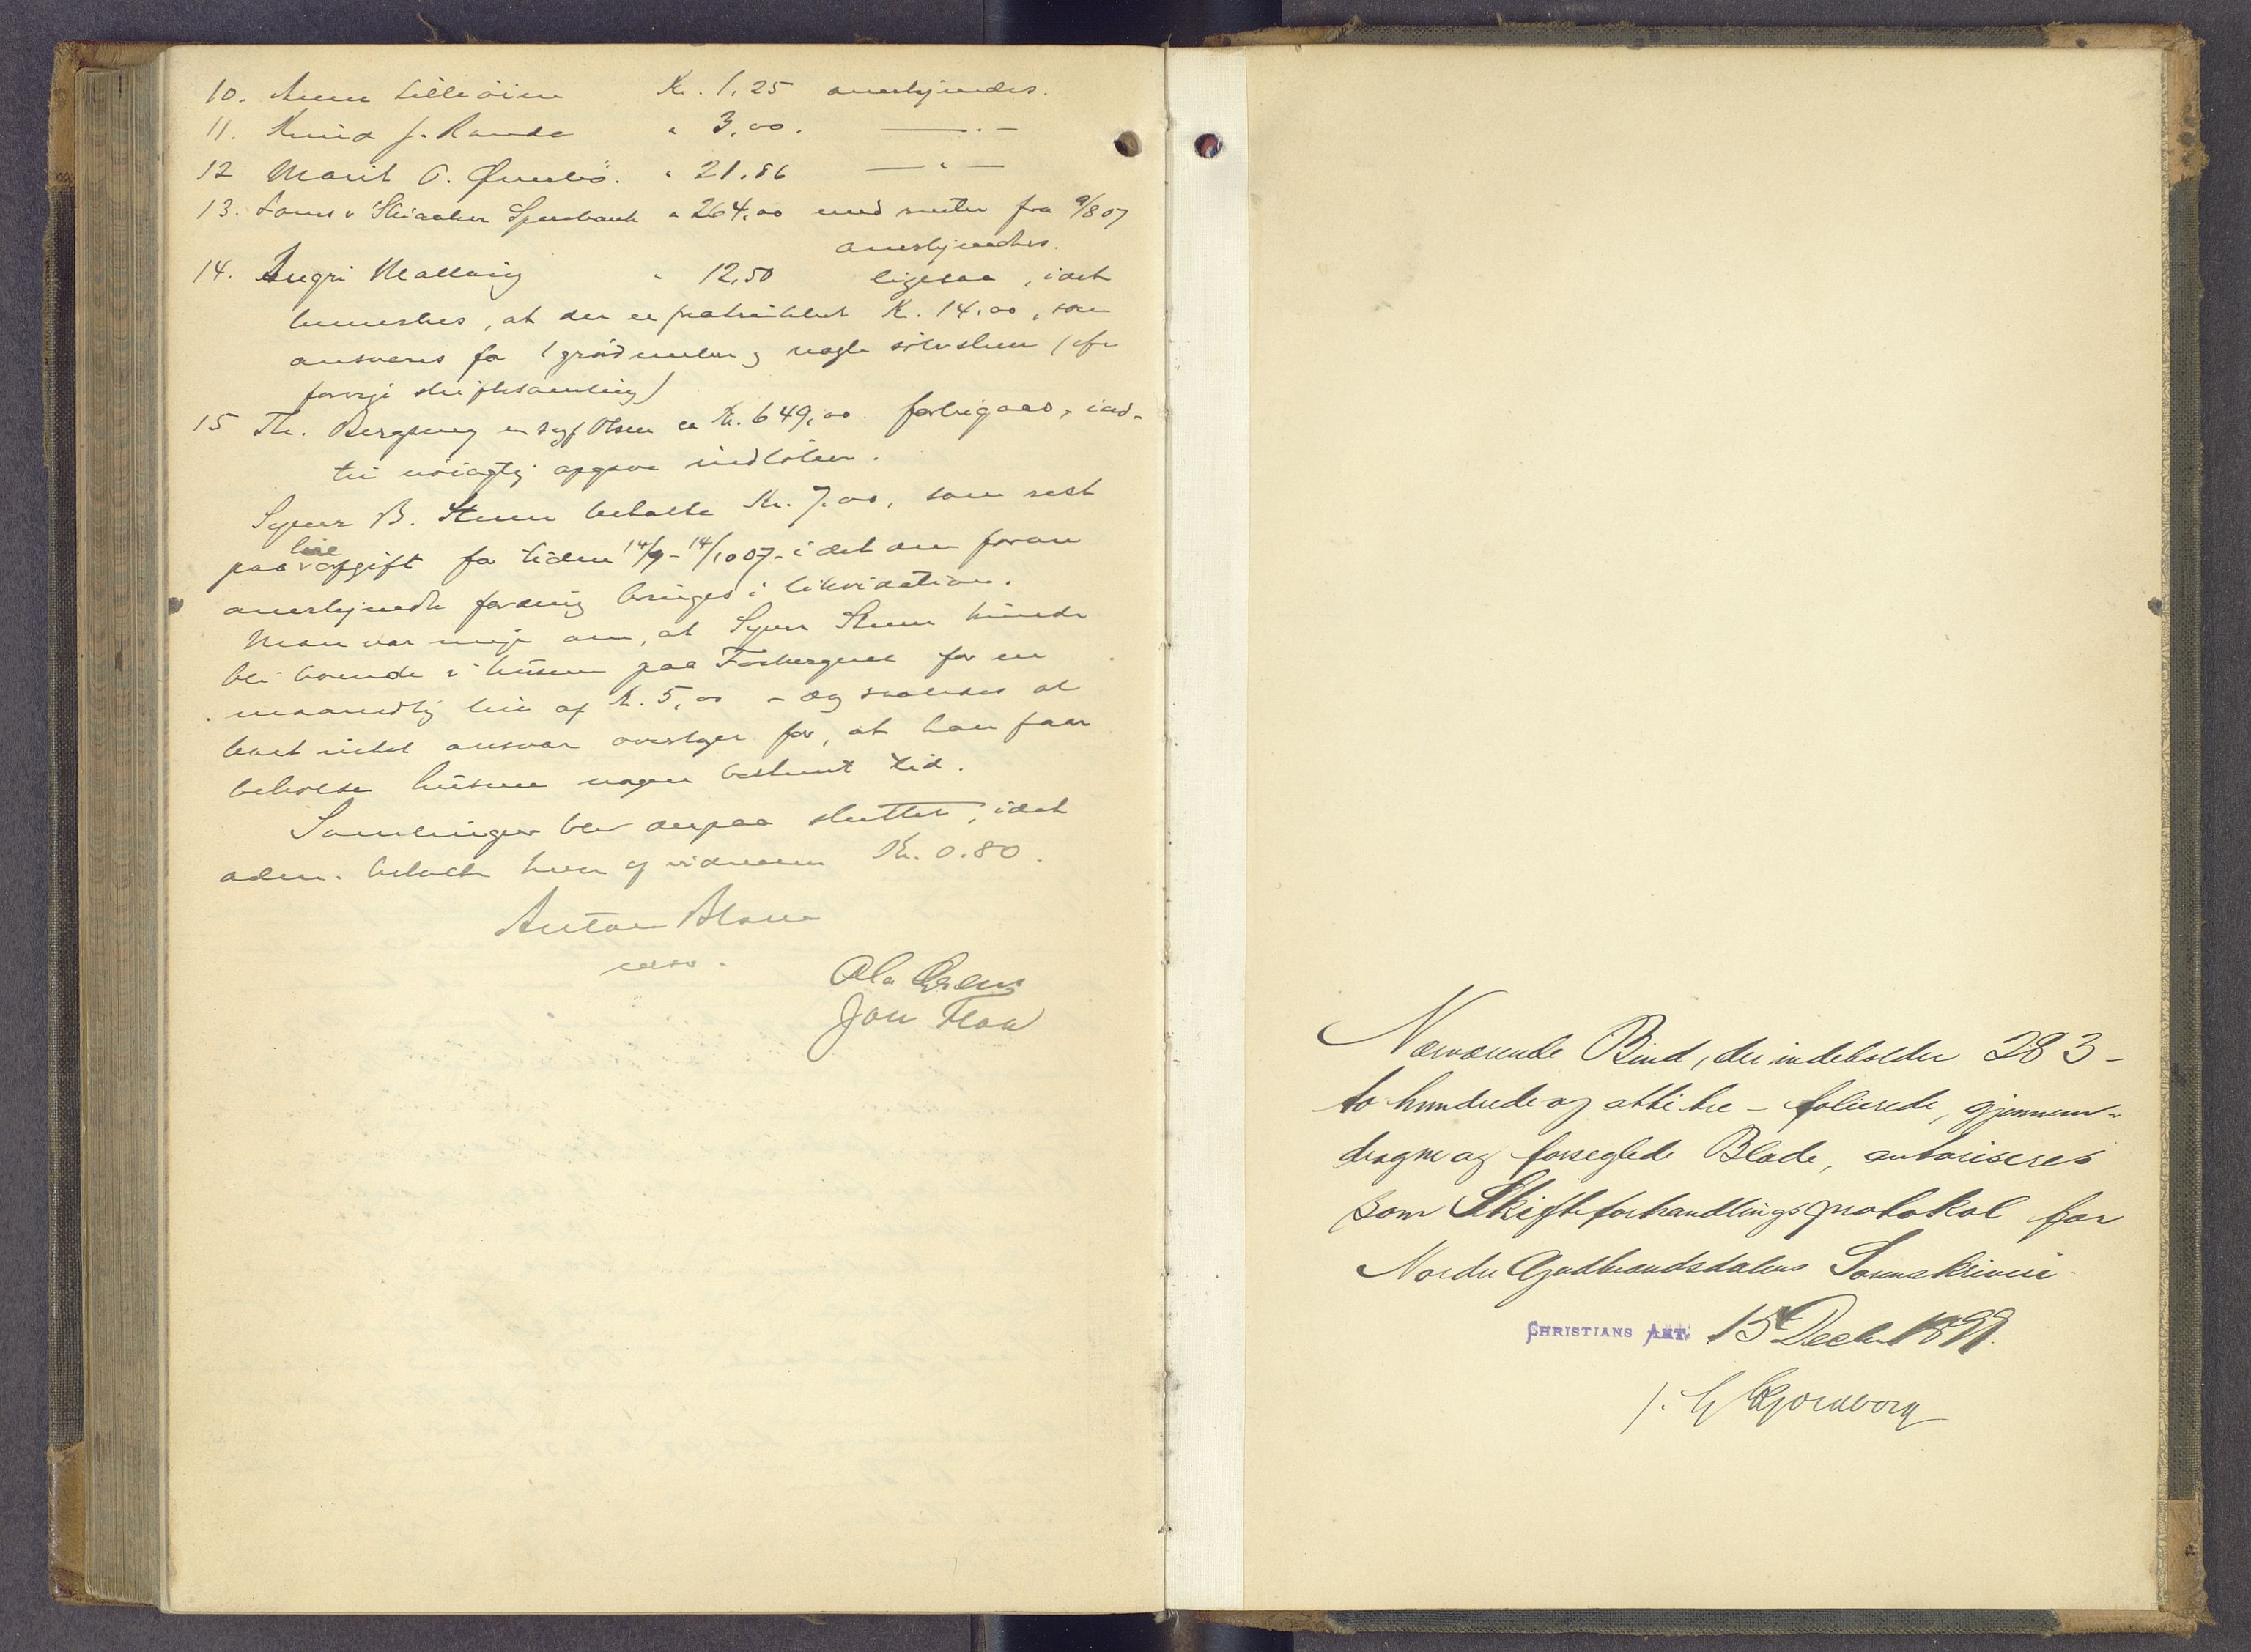 10. Anne Lilleöien Kr. 1,25 anerkjendes.
11. Knud J. Rande " 3,00. —.—
12 Marit O. Øverbö. " 21,86 —"—
13. Loms & Skiaaker Sparebank " 264,00 med renter fra 9/8 07
anerkjendtes.
14. Ingri Mallvig " 12,50 ligesaa, idet
bemerkes, at der er fratrukket Kr. 14,00, som
ansvares for 1 grød og nogle sölvskeer (cfr
forrige skiftesamling)
15 Th. Bergseng Olsen ca Kr. 649,00. forbigaaes, ind-
til nöiagtig opgave indlöber.
Syver B. Steen betalte Kr. 7.00, som rest
paa leieafgift for tiden 14/9 - 14/10 07 - idet den foran
anerkjendte fordring bringes i likvidation.
Man var enige om, at Syver Steen kunde
bli boende i husene paa Fosbergene for en
maanedlig leie af Kr. 5,00 - og saaledes at
boet intet ansvar overtager for, at han faar
beholde husene nogen bestemt tid.
Samlingen blev derpaa sluttet, idet
adm. betalte hver af vidnerne Kr. 0.80.
Anton
const.
Ola
Jon Flaa
Nærværende Bind, der indeholder 283 -
to hundrede og otti tre - folierede, gjennem-
dragne og forseglede Blade, autoriseres
som Skifteforhandlingsprotokol for
Nordre Gudbrandsdalens Sorenskriveri
CHRISTIANS AMT. 15 Decbr 1899.